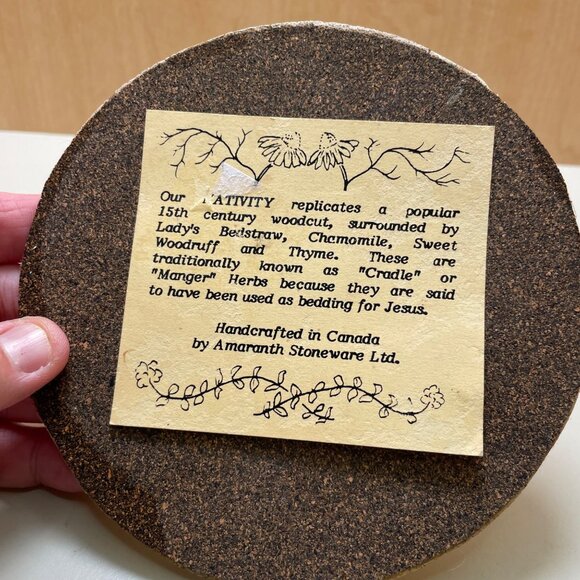 Our NATIVITY replicates a popular
15th century woodcut, surrounded by
Lady's Bedstraw, Chamomile, Sweet
Woodruff and Thyme. These are
traditionally known as "Cradle" or
"Manger" Herbs because they are said
to have been used as bedding for Jesus.
Handcrafted in Canada
by Amaranth Stoneware Ltd.